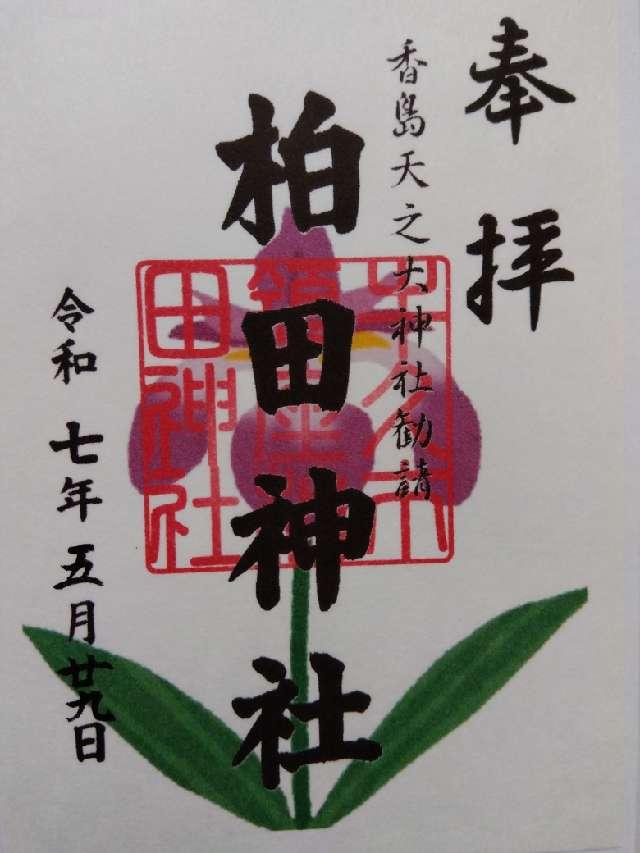 奉拝
香島天之大神社勧請
柏田神社
令和七年五月廿九日